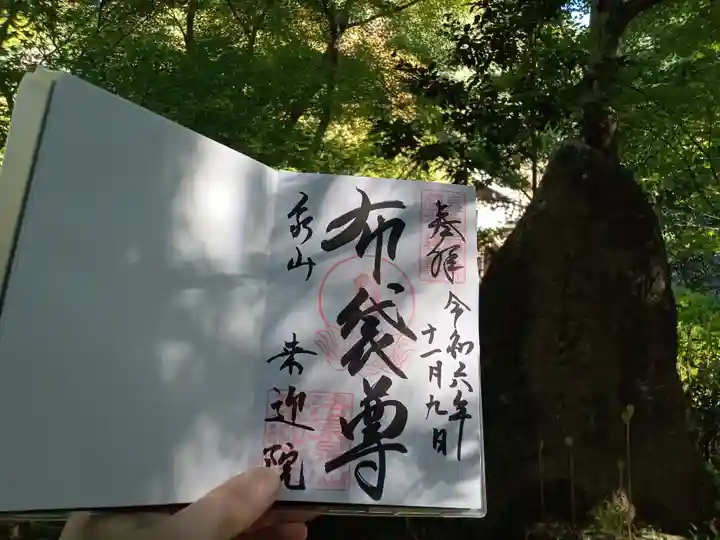 奉拝
令和六年
十一月九日
布袋尊
泉山
来迎院